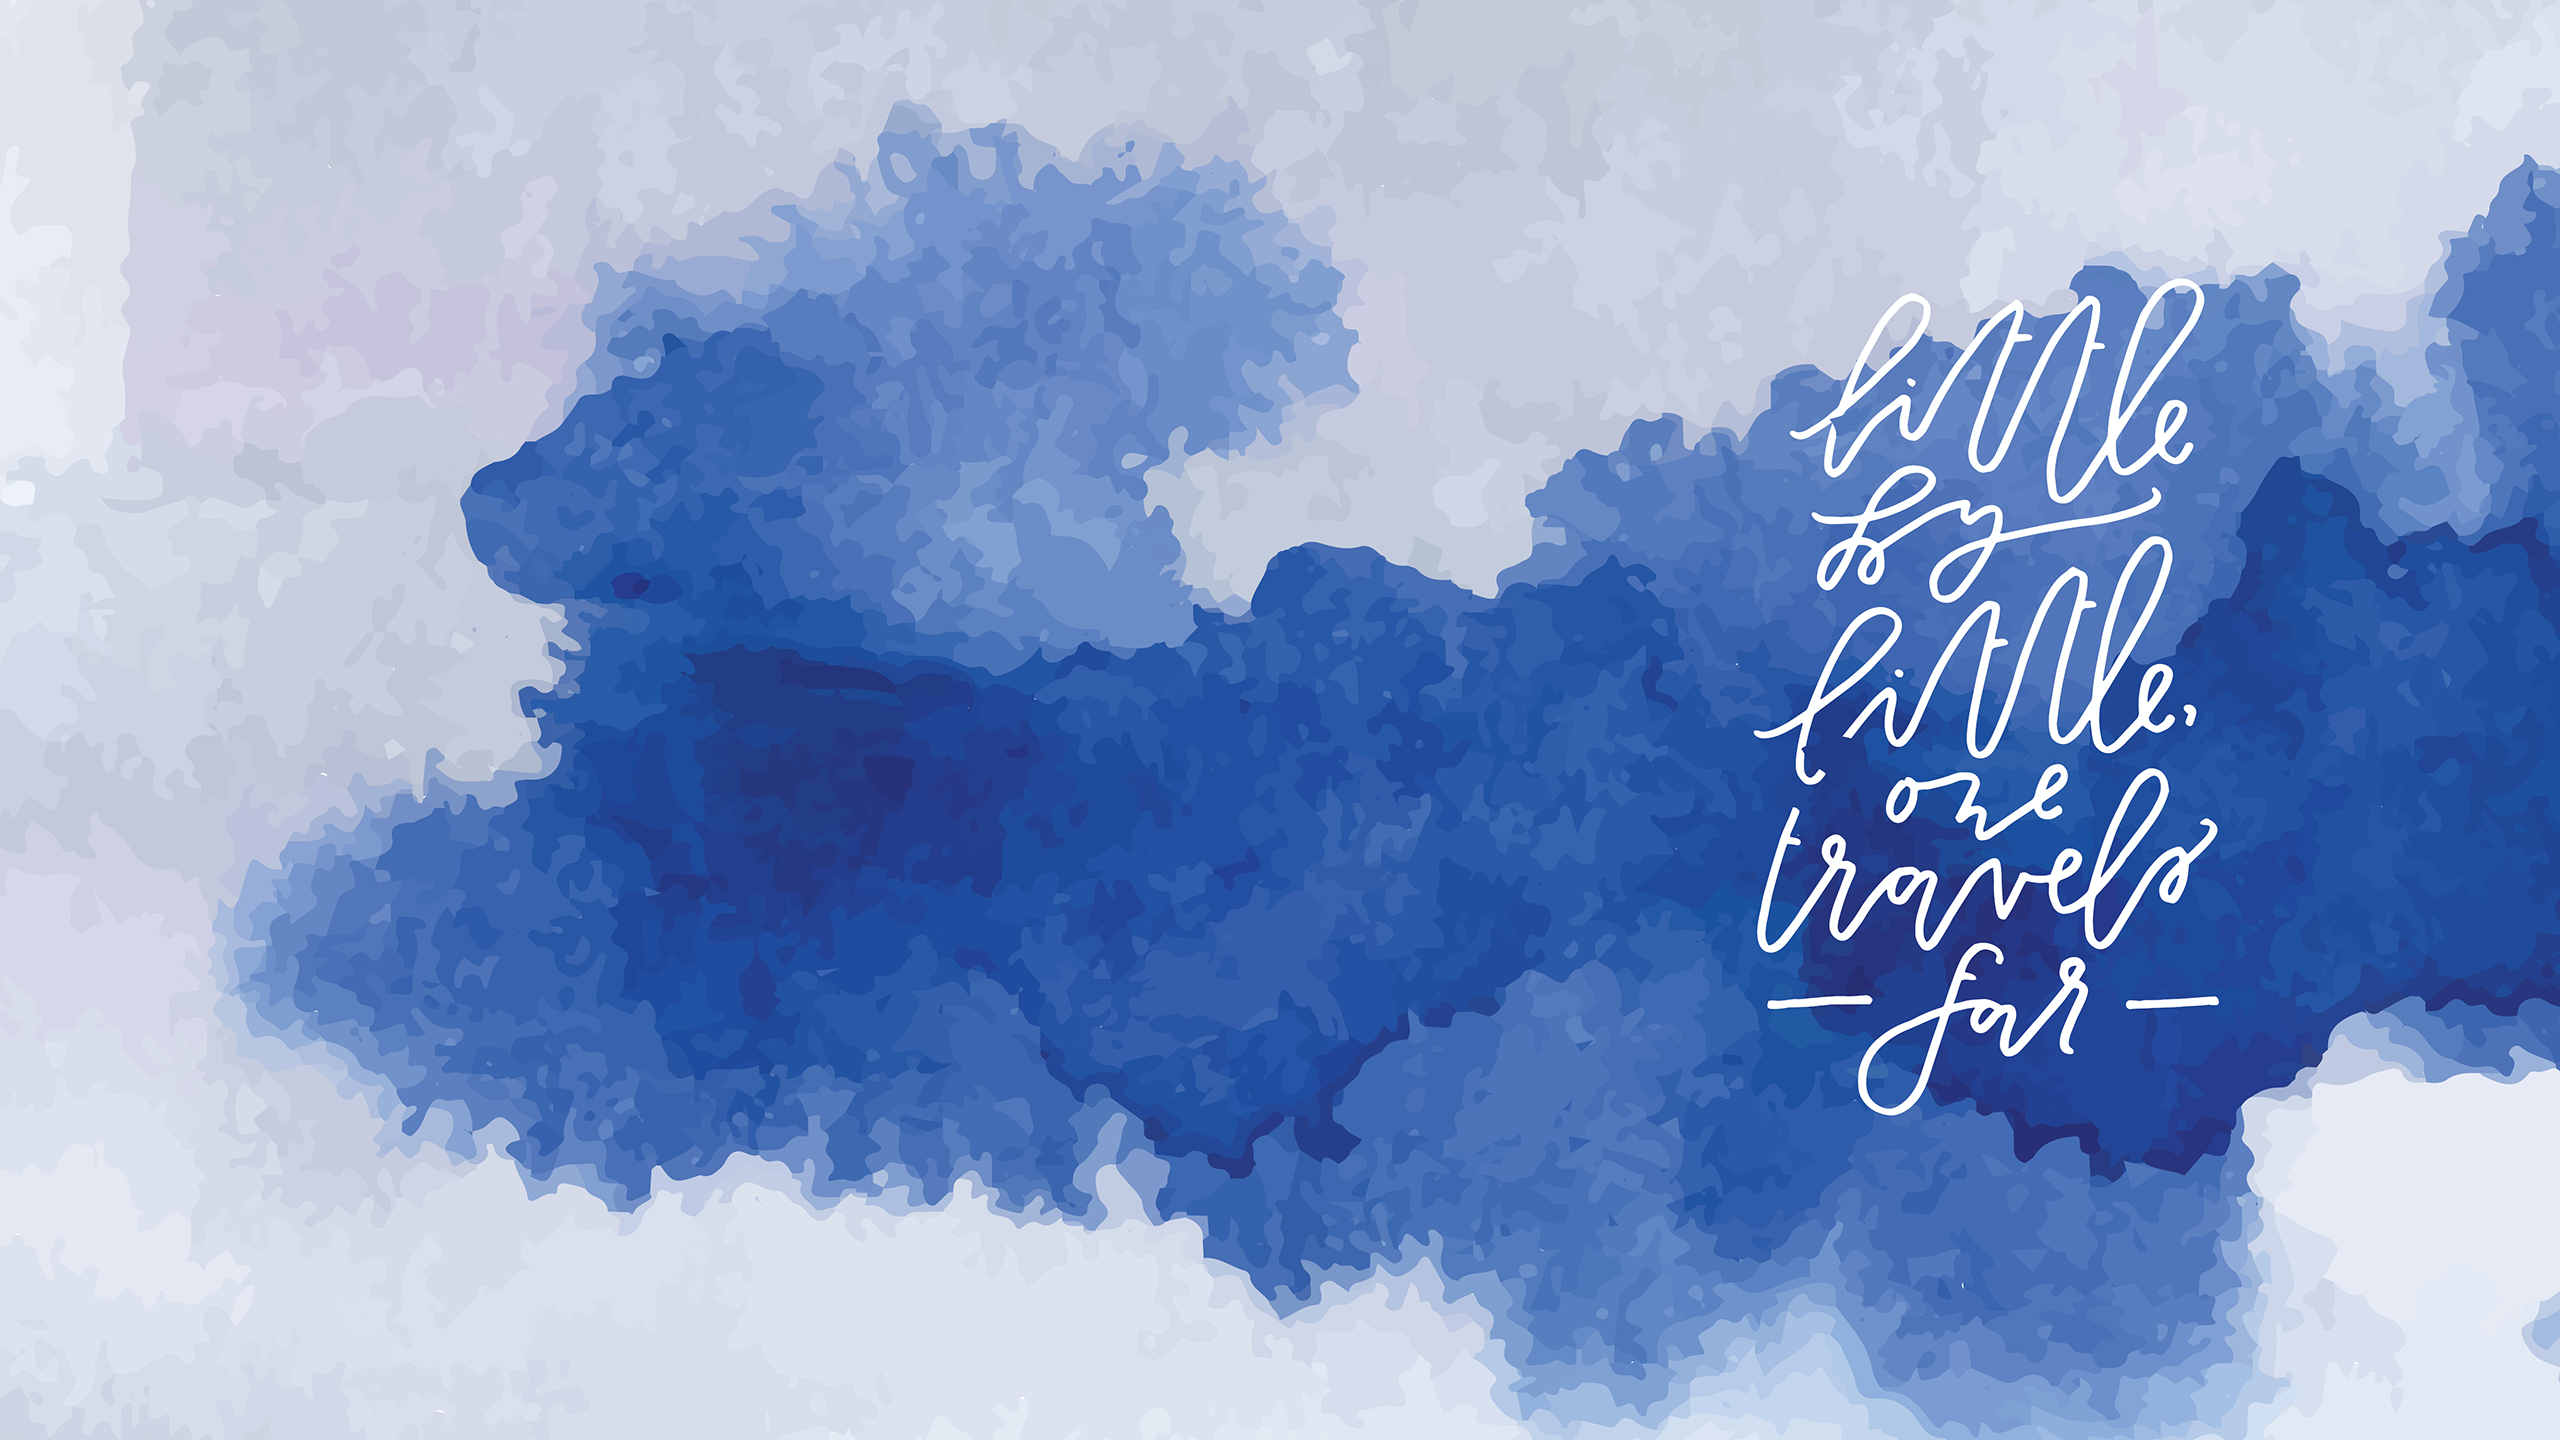 little
by
little,
one
travels
- far -